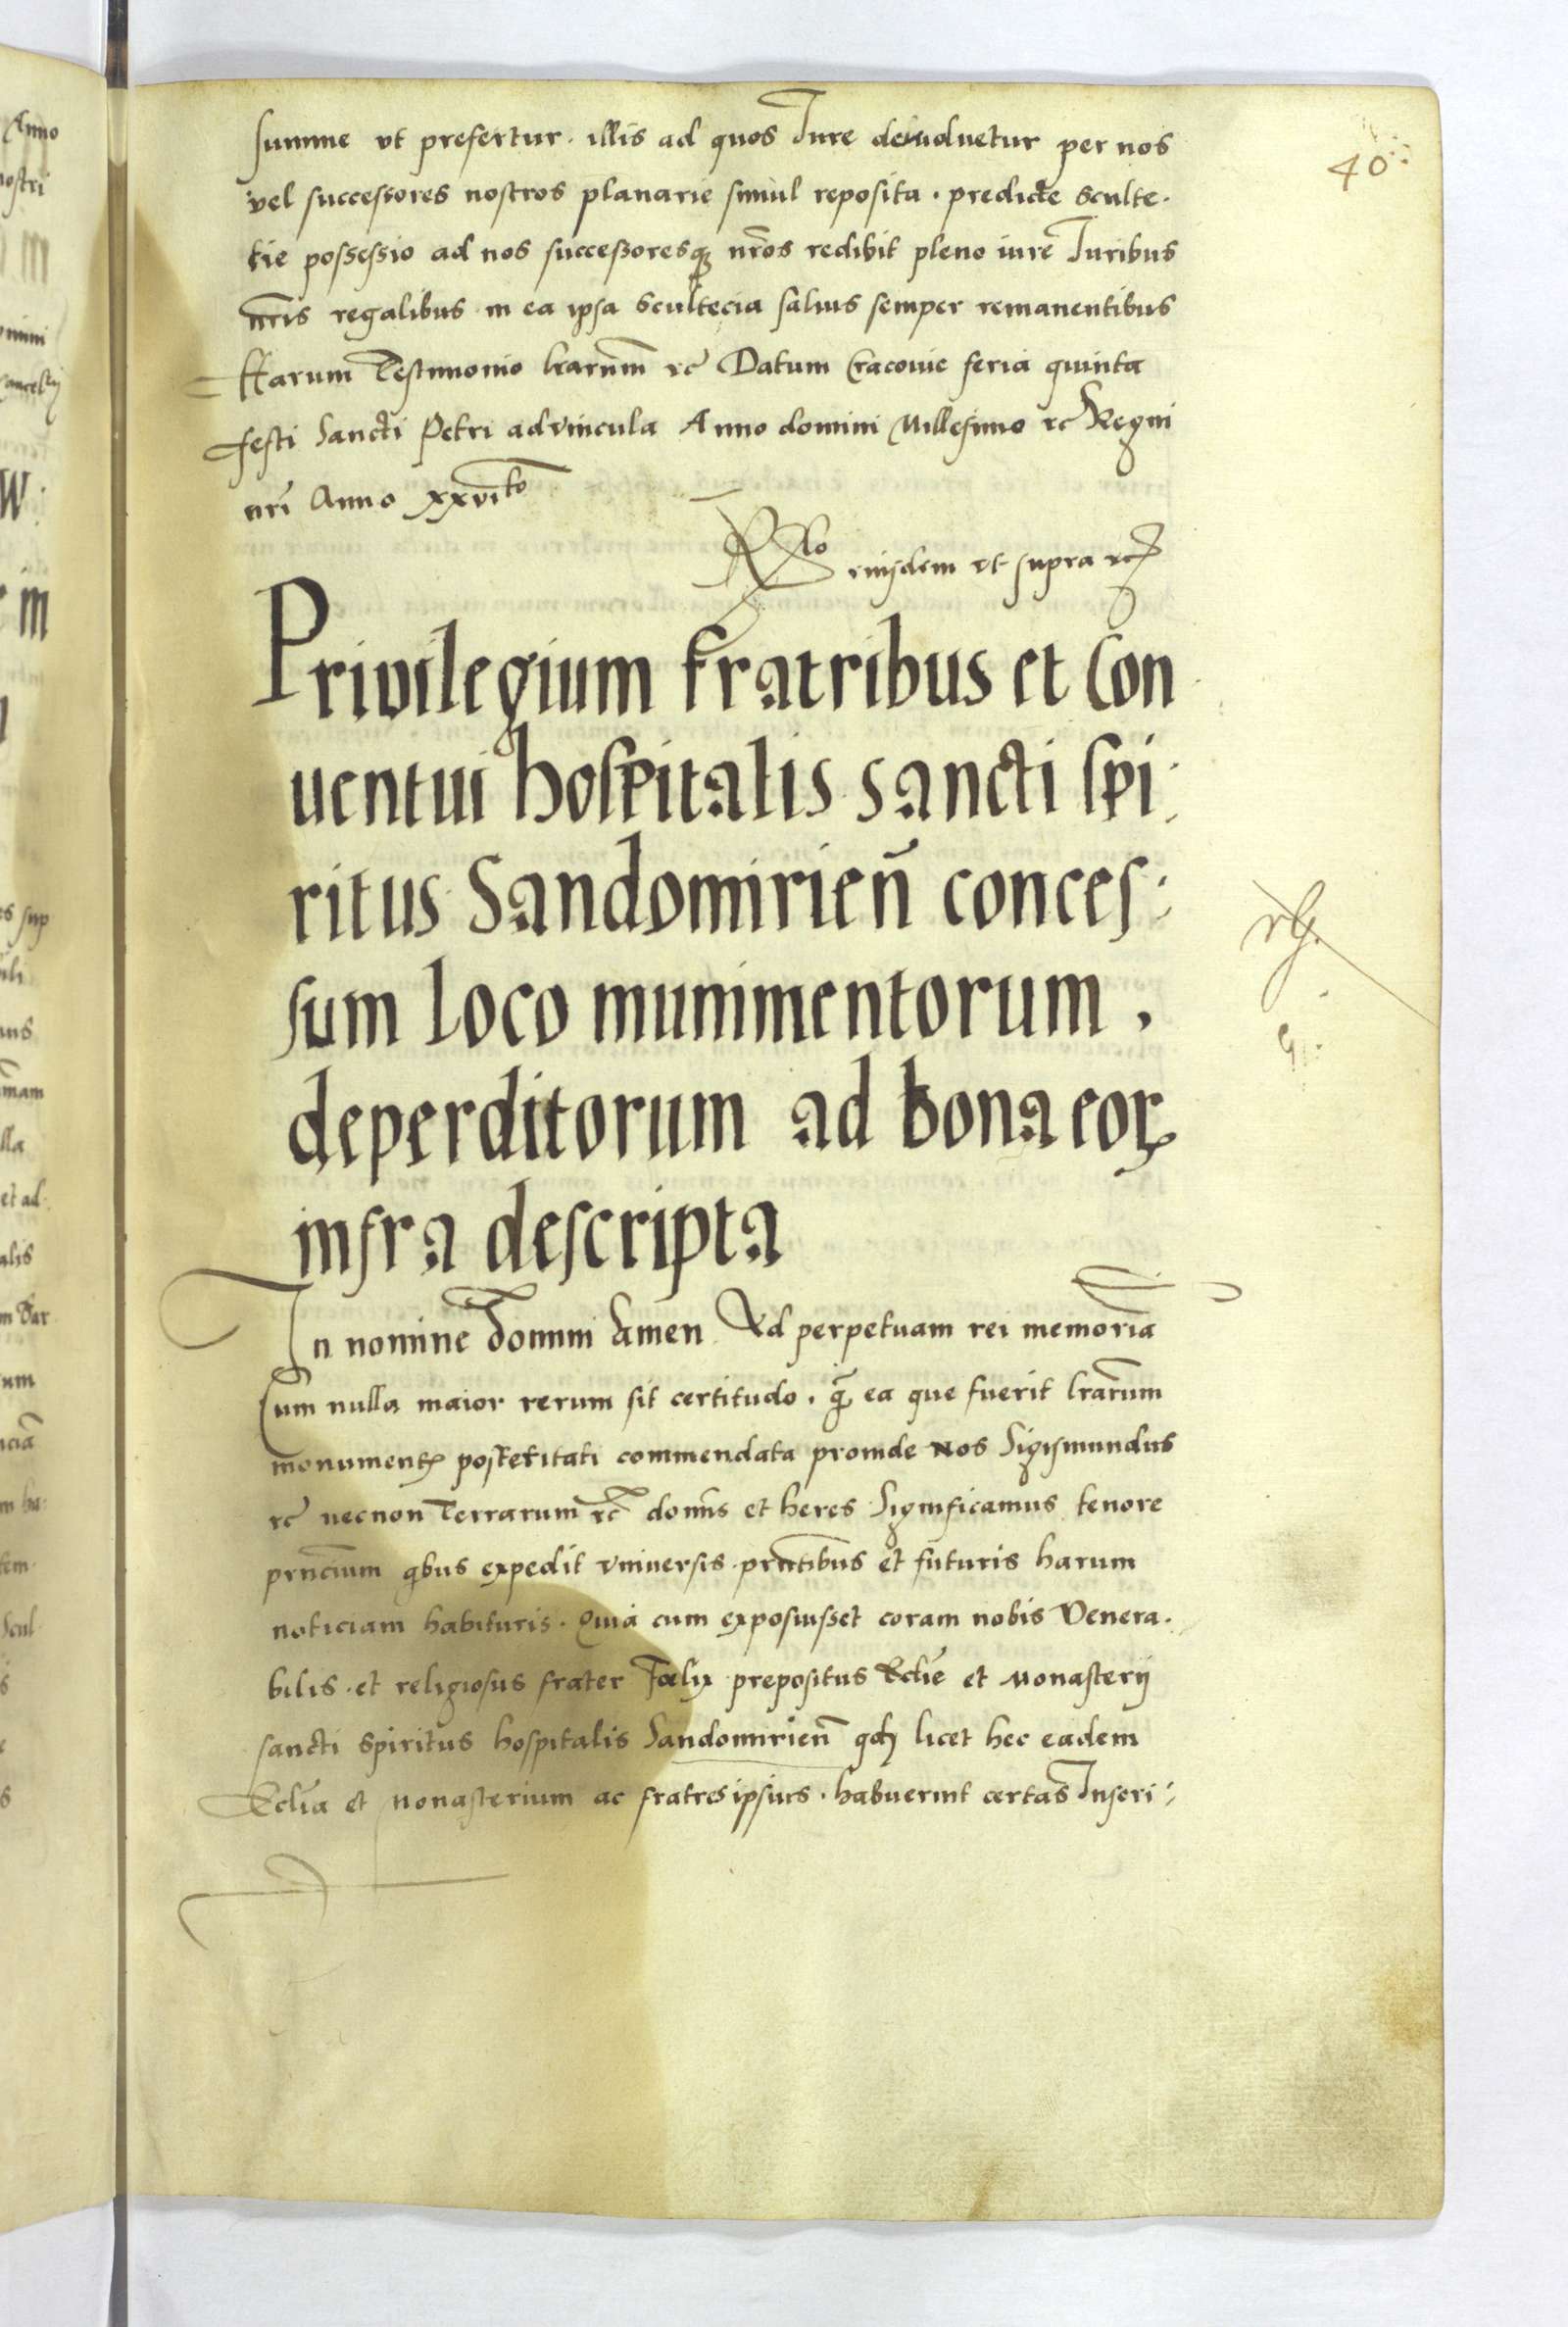 40
summe vt prefertur. illis ad quos Iure deuoluetur per nos
vel successores nostros planarie simul reposita. predicte Sculte.
tie possessio ad nos successoresqꝫ nr̄os redibit pleno iure Iuribus
nr̄is regalibus in ea ipsa Scultecia saluis semper remanentibus
Harum Testimonio lrarum̄ ꝛc̄ Datum Cracouie feria quinta
festi Sancti Petri ad vincula Anno domini Millesimo ꝛc Regni
nr̄i Anno xxvito
Rlo eiusdem vt supra ꝛc
Privilegium fratribus et Con
uentui hospitalis sancti spi:
ritus Sandomirien̄ conces:
sum loco munimentorum.
deperditorum ad bona eoꝝ
infra descripta
In nomine Domini Amen Ad perpetuam rei memoria
Cum nulla maior rerum sit certitudo. q̄ȝ ea que fuerit lrar̄um
monumentꝭ posteritati commendata proinde Nos Sigismundus
ꝛc̄ necnon Terrarum ꝛc̄ domn̄s et heres Significamus tenore
prn̄cium qbus expedit vniuersis. prn̄tibus et futuris harum
noticiam habituris. Quia cum exposuisset coram nobis Venera.
bilis. et religiosus frater Fœlix prepositus Eccl̄ie et Monasterij
sancti Spiritus hospitalis Sandomirien̄ qdȝ licet hec eadem
Eccl̄ia et Monasterium ac fratres ipsius. habuerint certas Inscri: